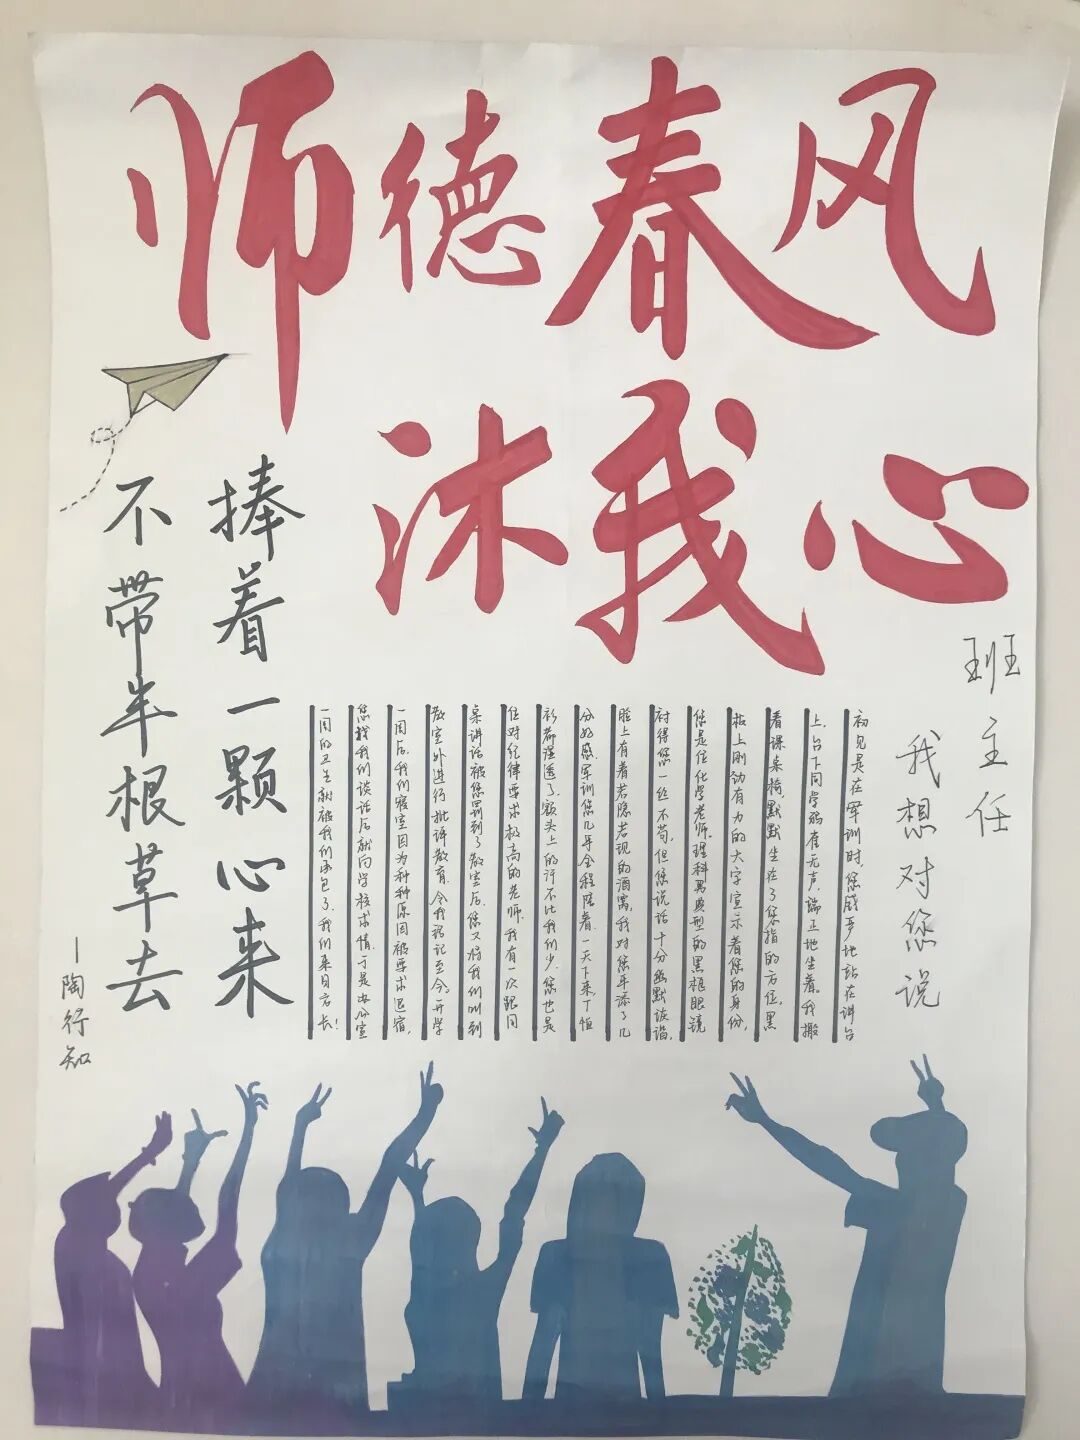 师德春风
沐我心
班主任
我想对您说
初见是在军训时，您威严地站在讲台
上，台下同学鸦雀无声，端正地坐着。我搬
着课桌椅，默默坐在了您指的方位，黑
板上刚劲有力的大字宣示着您的身份，
您是位化学老师。理科男典型的黑框眼镜
衬得您一丝不苟，但您说话十分幽默诙谐，
脸上有着若隐若现的酒窝，我对您平添了几
分好感。军训您几乎全程陪着，一天下来T恤
衫都湿透了，额头上的汗不比我们少。您也是
位对纪律要求极高的老师，我有一次跟同
桌讲话被您罚到了教室后，您又将我们叫到
教室外进行批评教育，令我铭记至今。开学
一周后，我们寝室因为种种原因被要求退宿，
您找我们谈话后就向学校求情，于是办公室
一周的卫生就被我们承包了。我们来日方长！
捧着一颗心来
不带半根草去
—陶行知